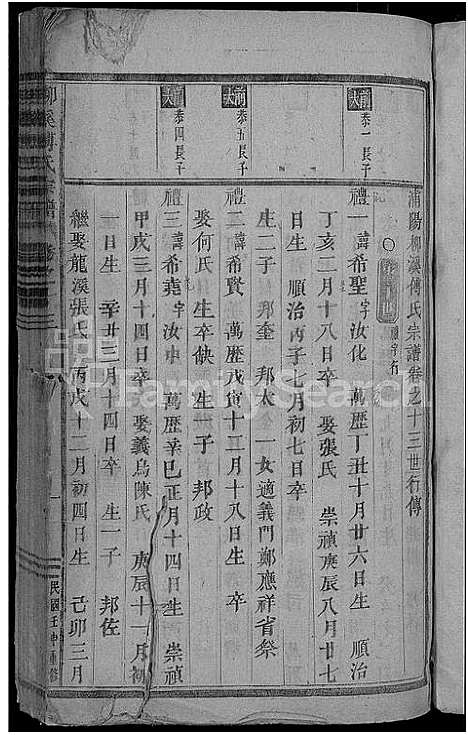 浦陽柳溪傅氏宗譜卷之十三世行傳
禮字行
前大
恭一長子
禮一 諱希聖 字汝化 萬歷丁丑十月廿六日生 順治
丁亥二月十八日卒 娶張氏 崇禎庚辰八月廿七
日生 順治丙子七月初七日卒
生二子 邦奎 邦太 一女適義門鄭應祥省祭
前大
恭五長子
禮二 諱希賢 萬歷戊寅十二月十八日生 卒
娶何氏 生卒缺 生一子 邦政
前大
恭四長子
禮三 諱希堯 字汝中 萬歷辛巳正月十四日生 崇禎
甲戌三月十四日卒 娶義烏陳氏 庚辰十一月初
一日生 辛丑三月十四日卒 生一子 邦佐
繼娶龍溪張氏 丙戌十二月初四日生 己卯三月
柳溪傅氏宗譜 卷之十三
民國壬申重修
FamilySearch